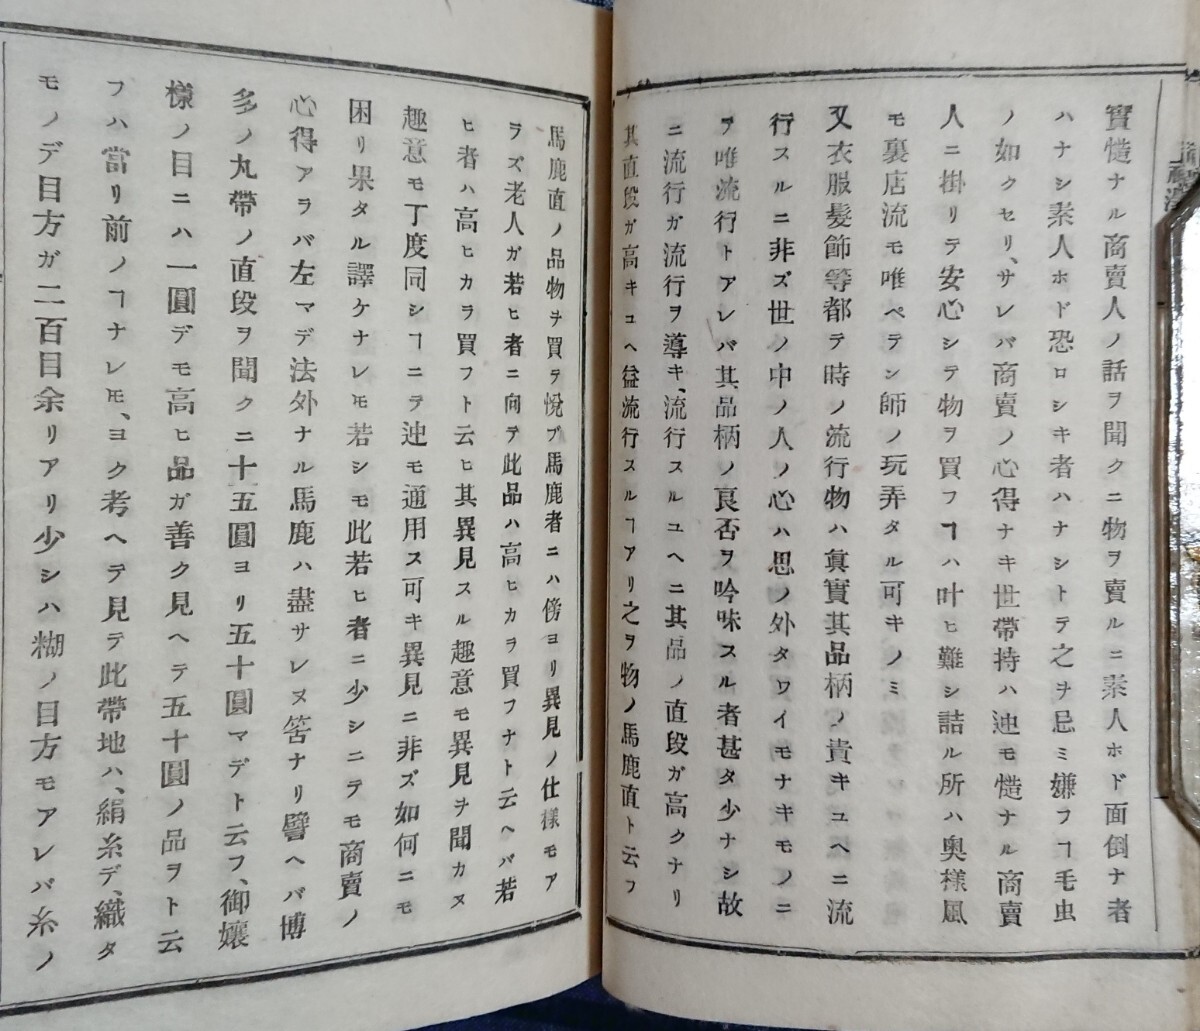 實慥ナル商賣人ノ話ヲ聞クニ物ヲ賣ルニ素人ホド面倒ナ者
ハナシ素人ホド恐ロシキ者ハナシトテ之ヲ忌ミ嫌フヿ毛虫
ノ如クセリ、サレバ商賣ノ心得ナキ世帶持ハ迚モ慥ナル商賣
人ニ掛リテ安心シテ物ヲ買フヿハ叶ヒ難シ詰ル所ハ奥様風
モ裏店流モ唯ペテン師ノ玩弄タル可キノミ
又衣服髮飾等都テ時ノ流行物ハ眞實其品柄ノ貴キユヘニ流
行スルニ非ズ世ノ中ノ人ノ心ハ思ノ外タワイモナキモノニ
テ唯流行トアレバ其品柄ノ良否ヲ吟味スル者甚タ少ナシ故
ニ流行ガ流行ヲ導キ、流行スルユヘニ其品ノ直段ガ高クナリ
其直段ガ高キユヘ益流行スルヿアリ之ヲ物ノ馬鹿直ト云フ
馬鹿直ノ品物ヲ買テ悅ブ馬鹿者ニハ傍ヨリ異見ノ仕樣モア
ラズ老人ガ若ヒ者ニ向テ此品ハ高ヒカラ買フナト云ヘバ若
ヒ者ハ高ヒカラ買フト云ヒ其異見スル趣意モ異見ヲ聞カヌ
趣意モ丁度同シヿニテ迚モ通用ス可キ異見ニ非ズ如何ニモ
困リ果タル譯ケナレモ若シモ此若ヒ者ニ少シニテモ商賣ノ
心得アラバ左マデ法外ナル馬鹿ハ盡サレヌ筈ナリ譬ヘバ博
多ノ丸帶ノ直段ヲ聞クニ十五圓ヨリ五十圓マデト云フ、御孃
樣ノ目ニハ一圓デモ高ヒ品ガ善ク見ヘテ五十圓ノ品ヲト云
フハ當リ前ノヿナレ𪜈、ヨク考ヘテ見テ此帶地ハ、絹糸デ、織タ
モノデ目方ガ二百目余リアリ少シハ糊ノ目方モアレバ糸ノ